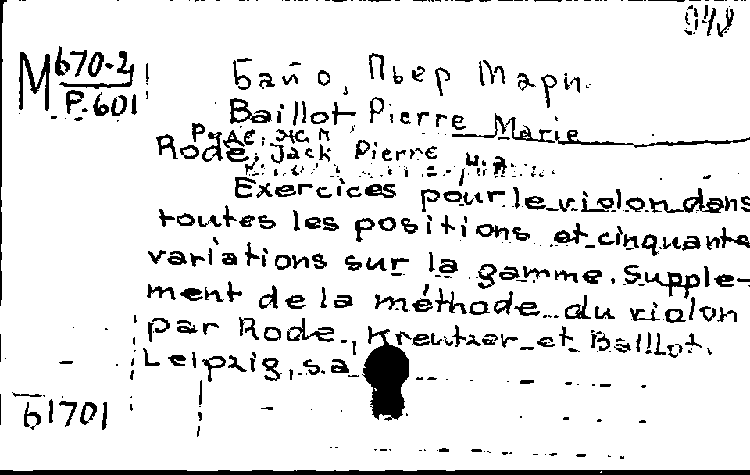 948
M 670-2
P-601
Байо, Пьер Мари.
Baillot Pierre Marie
Роде, Жак
Rode, Jack Pierre и.а.
Exercices pour le violon dans
toutes les positions et cinquante
variations sur la gamme. Supple-
ment de la méthode du violon
par Rode, Kreutzer et Baillot.
Leipzig, s.a
Б1701